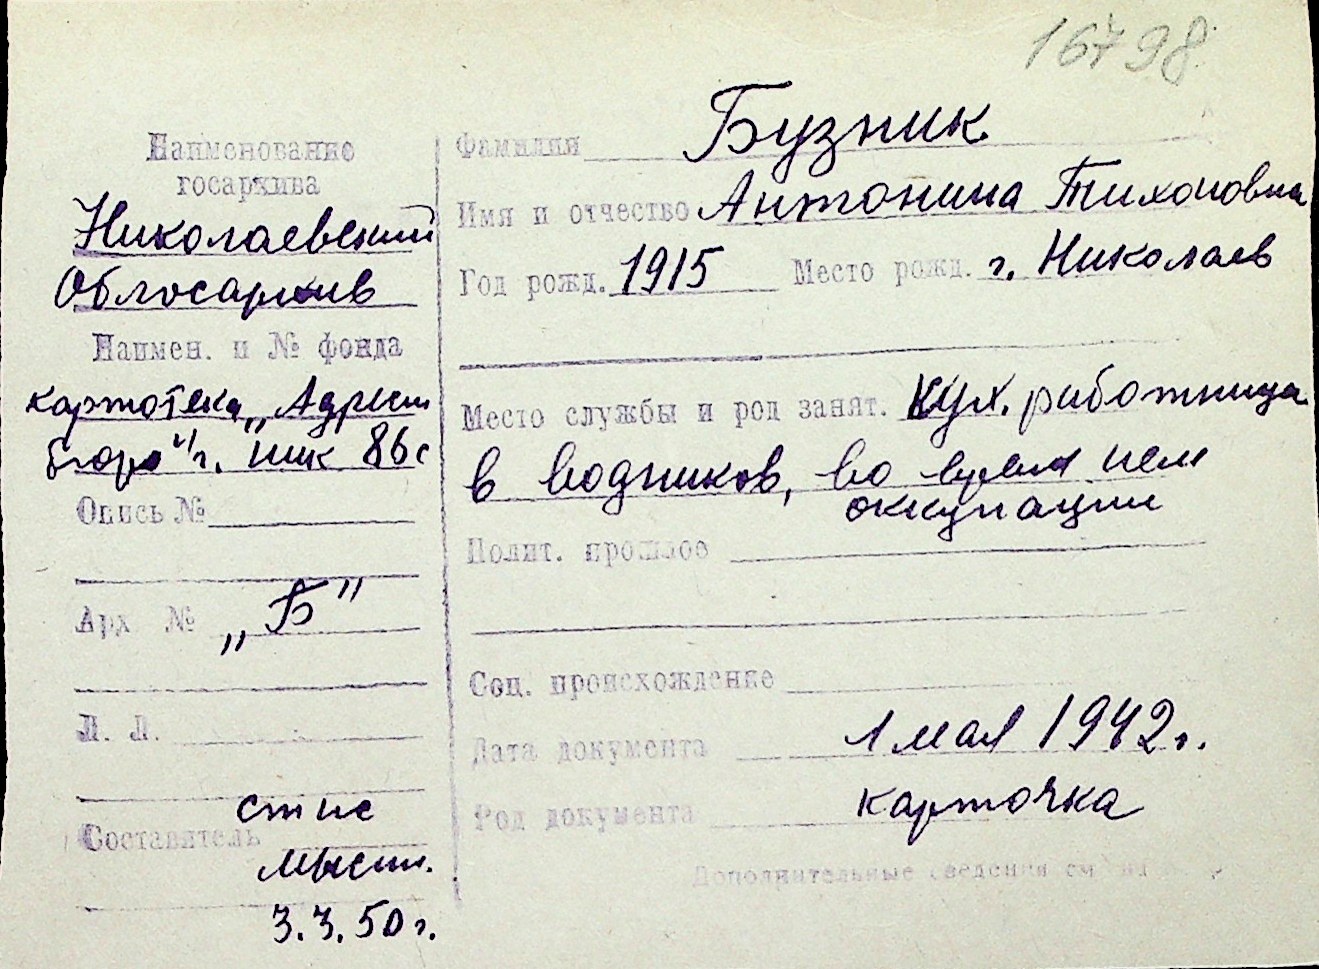 16798
Наименование
госархива
Николаевский
Облгосархив
Наимен. и № фонда
картотека „Адресн
бюро" г. Ник 86с
Опись №
Арх №
„Б"
Л. Л.
Составитель
3.3.50 г.
Фамилия Бузник
Имя и отчество Антонина Тихоновна
Год рожд. 1915 Место рожд. г. Николаев
Место службы и род занят. Кух. работница
в водников, во время нем
оккупации
Полит. прошлое
Соц. происхождение
Дата документа 1 мая 1942 г.
Род документа карточка
Дополнительные сведения см на